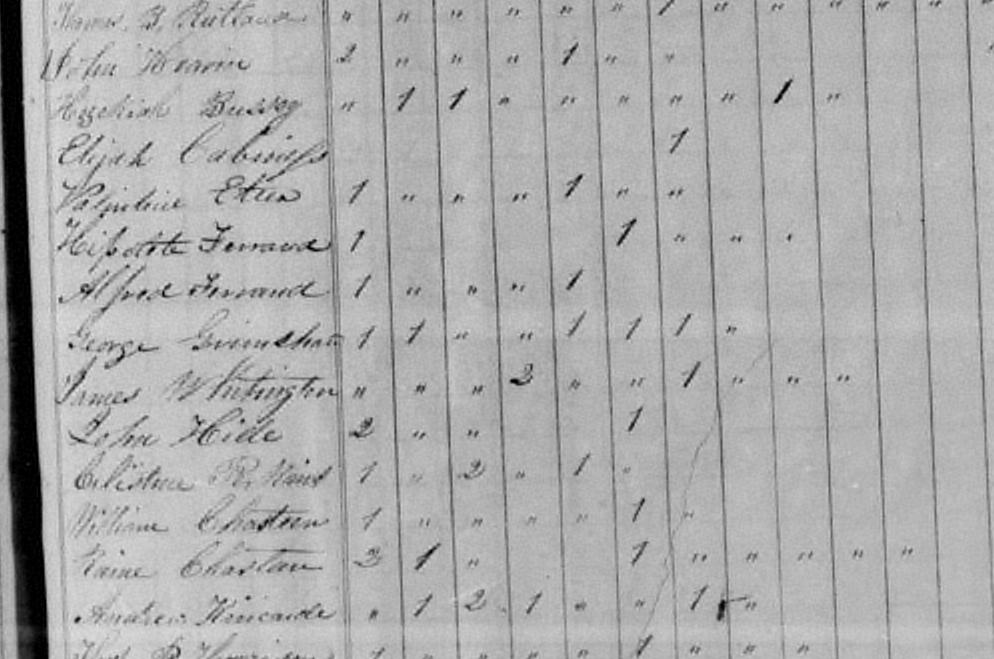 James B. Ruttand " " " " " " 1 " " " " " "
John 2 " " " 1 " "
Hezekiah Bussey " 1 1 " " " " " 1 "
Elijah Cabiness 1
Valentine 1 " " " 1 " "
Ferrand 1 1 " " "
Alfred Ferrand 1 " " " 1
George Grimshaw 1 1 " " 1 1 1 "
James Whitington " " " 2 " " 1 " " "
John Hide 2 " " 1
Celistine R. 1 " 2 " 1 "
William Chasteen 1 " " " " 1 "
Raine Chastain 2 1 " 1 " " " " "
Andrew Kincaide " 1 2 1 " " 1 "
1 " " " " 1 " " "